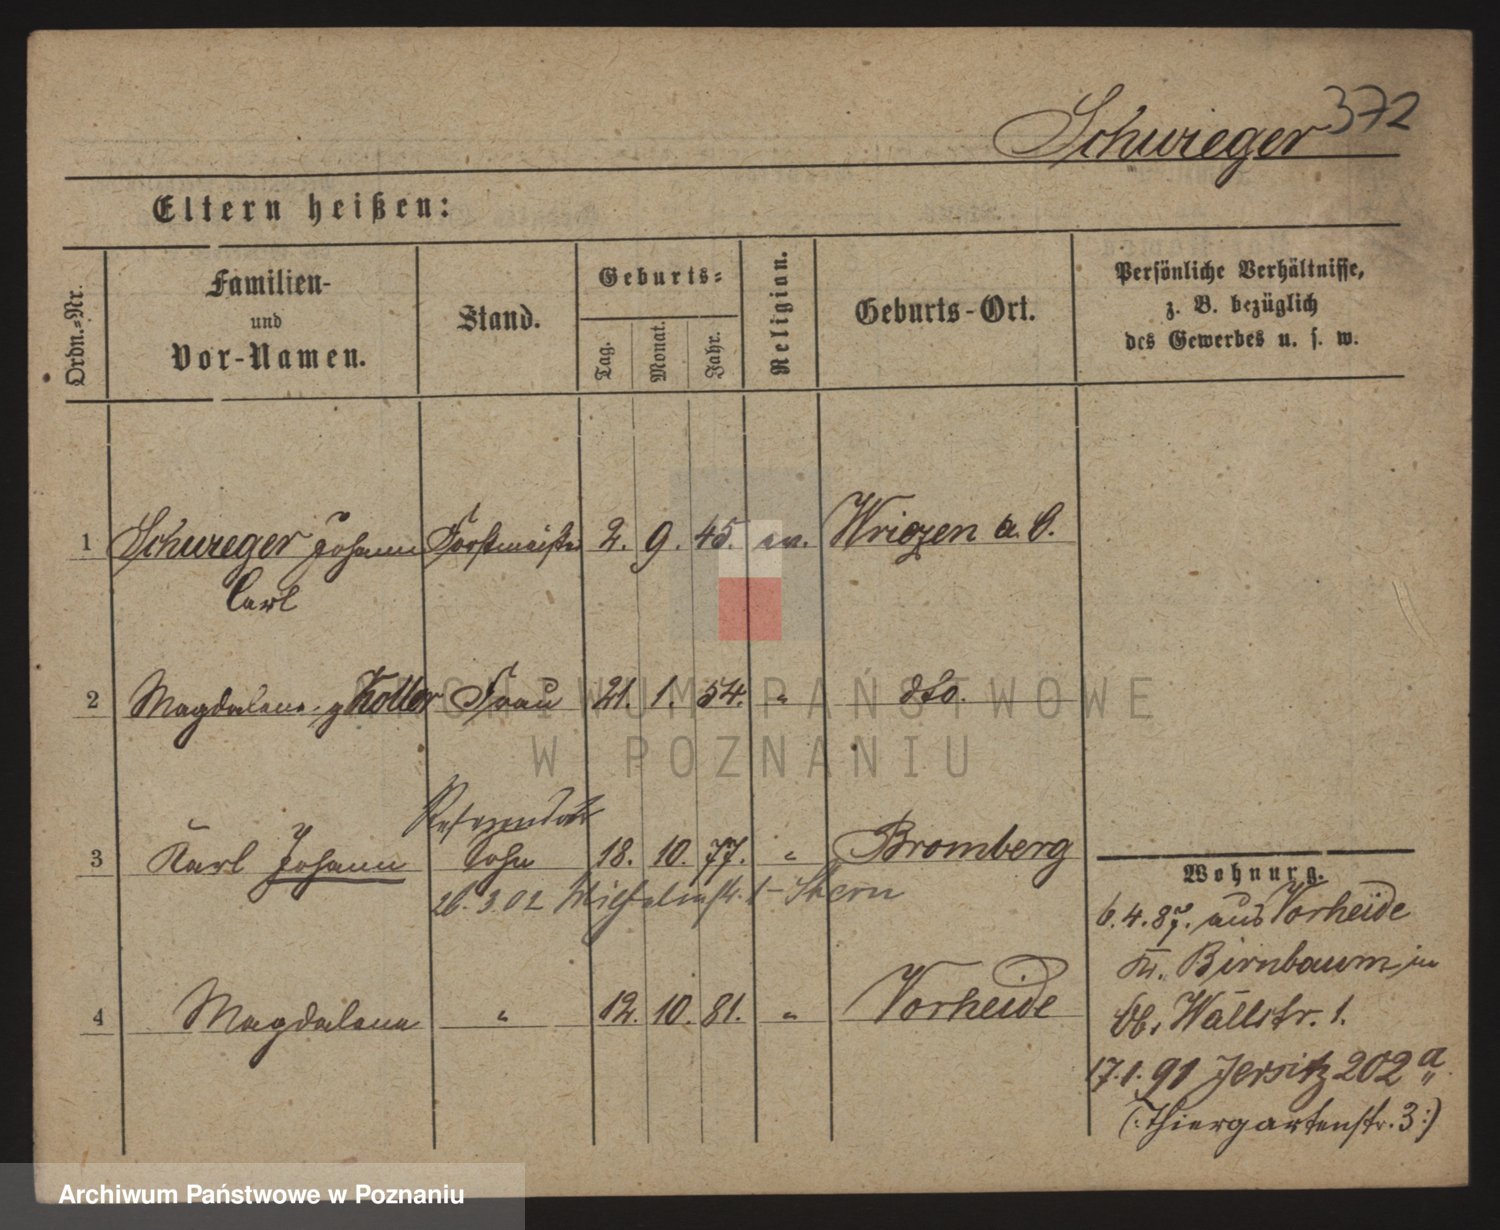 Schwieger 372
Eltern heißen:
Ordn.=Nr.
Familien-
und
Vor-Namen.
Stand.
Geburts=
Tag.
Monat.
Jahr.
Religion.
Geburts-Ort.
Persönliche Verhältnisse,
z. B. bezüglich
des Gewerbes u. s. w.
1 Schwieger Johann Forstmeister 2. 9. 45. ev. Wriezen a. O.
Carl
2 Magdalene g Koller Frau 21. 1. 54. " dto.
Referendar
3 Karl Johann Sohn 18. 10. 77. " Bromberg
26.3.02 Wilhelmstr. 1 - Stern
4 Magdalena " 12. 10. 81. " Vorheide
Wohnung.
6.4.87. aus Vorheide
Kr. Birnbaum, in
Wallstr. 1.
17.1.91 Jersitz 202 a
(: Thiergartenstr. 3 :)
ARCHIWUM PAŃSTWOWE
W POZNANIU
Archiwum Państwowe w Poznaniu